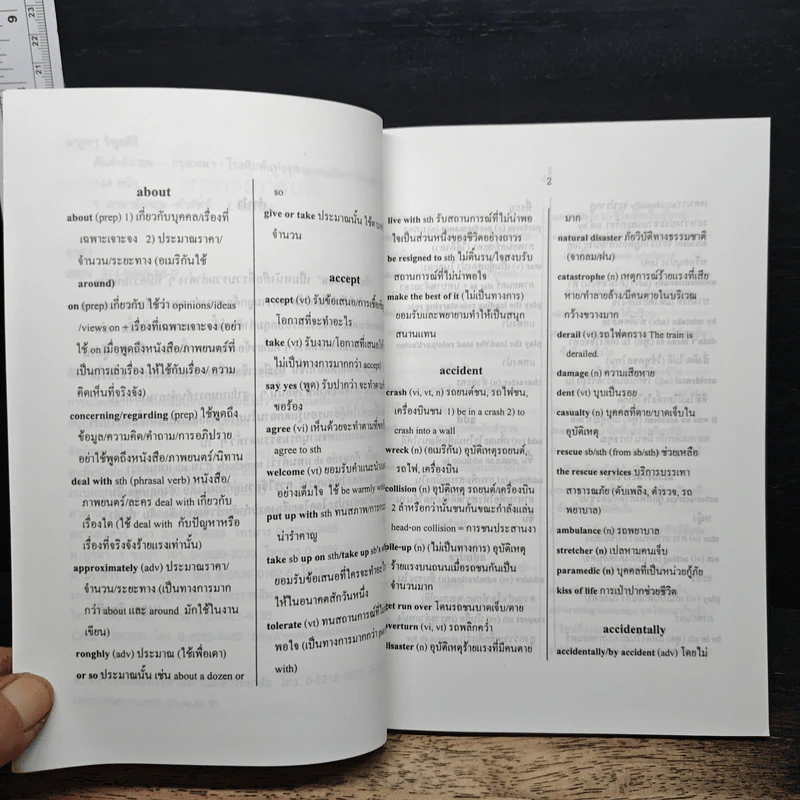 9
23
22
21
about
about (prep) 1) เกี่ยวกับบุคคล/เรื่องที่
เฉพาะเจาะจง 2) ประมาณราคา/
จำนวน/ระยะทาง (อเมริกันใช้
around)
on (prep) เกี่ยวกับ ใช้ว่า opinions/ideas
/views on + เรื่องที่เฉพาะเจาะจง (อย่า
ใช้ on เมื่อพูดถึงหนังสือ/ภาพยนตร์ที่
เป็นการเล่าเรื่อง ให้ใช้กับเรื่อง/ ความ
คิดเห็นที่จริงจัง)
concerning/regarding (prep) ใช้พูดถึง
ข้อมูล/ความคิด/คำถาม/การอภิปราย
อย่าใช้พูดถึงหนังสือ/ภาพยนตร์/นิทาน
deal with sth (phrasal verb) หนังสือ/
ภาพยนตร์/ละคร deal with เกี่ยวกับ
เรื่องใด (ใช้ deal with กับปัญหาหรือ
เรื่องที่จริงจังร้ายแรงเท่านั้น)
approximately (adv) ประมาณราคา/
จำนวน/ระยะทาง (เป็นทางการมาก
กว่า about และ around มักใช้ในงาน
เขียน)
ronghly (adv) ประมาณ (ใช้เพื่อเดา)
or so ประมาณนั้น เช่น about a dozen or
so
give or take ประมาณนั้น ใช้ตาม
จำนวน
accept
accept (vt) รับข้อเสนอ/การเชื้อเชิญ
โอกาสที่จะทำอะไร
take (vt) รับงาน/โอกาสที่เสนอให้
ไม่เป็นทางการมากกว่า accept)
say yes (พูด) รับปากว่า จะทำตาม
ขอร้อง
agree (vi) เห็นด้วยจะทำตามที่
agree to sth
welcome (vt) ยอมรับคำแนะนำ
อย่างเต็มใจ ใช้ be warmly
put up with sth ทนสภาพ/การ
น่ารำคาญ
take sb up on sth/take up sb's
ยอมรับข้อเสนอที่ใครจะทำอะไร
ให้ในอนาคตสักวันหนึ่ง
tolerate (vt) ทนสถานการณ์ที่ไม่
พอใจ (เป็นทางการมากกว่า put
with)
2
live with sth รับสถานการณ์ที่ไม่น่าพอ
ใจเป็นส่วนหนึ่งของชีวิตอย่างถาวร
be resigned to sth ไม่ดิ้นรน/ใจสงบรับ
สถานการณ์ที่ไม่น่าพอใจ
make the best of it (ไม่เป็นทางการ)
ยอมรับและพยายามทำให้เป็นสนุก
สนานแทน
accident
crash (vi, vt, n) รถยนต์ชน, รถไฟชน,
เครื่องบินชน 1) be in a crash 2) to
crash into a wall
wreck (n) (อเมริกัน) อุบัติเหตุรถยนต์,
รถไฟ, เครื่องบิน
collision (n) อุบัติเหตุ รถยนต์/เครื่องบิน
2 ลำหรือกว่านั้นชนกันขณะกำลังแล่น
head-on collision = การชนประสานงา
pile-up (n) (ไม่เป็นทางการ) อุบัติเหตุ
ร้ายแรงบนถนนเมื่อรถชนกันเป็น
จำนวนมาก
get run over โดนรถชนบาดเจ็บ/ตาย
overturn (vi, vt) รถพลิกคว่ำ
disaster (n) อุบัติเหตุร้ายแรงที่มีคนตาย
มาก
natural disaster ภัยวิบัติทางธรรมชาติ
(จากลม/ฝน)
catastrophe (n) เหตุการณ์ร้ายแรงที่เสีย
หาย/ทำลายล้าง/มีคนตายในบริเวณ
กว้างขวางมาก
derail (vt) รถไฟตกราง The train is
derailed.
damage (n) ความเสียหาย
dent (vt) บุบเป็นรอย
casualty (n) บุคคลที่ตาย/บาดเจ็บใน
อุบัติเหตุ
rescue sb/sth (from sb/sth) ช่วยเหลือ
the rescue services บริการบรรเทา
สาธารณภัย (ดับเพลิง, ตำรวจ, รถ
พยาบาล)
ambulance (n) รถพยาบาล
stretcher (n) เปลหามคนเจ็บ
paramedic (n) บุคคลที่เป็นหน่วยกู้ภัย
kiss of life การเป่าปากช่วยชีวิต
accidentally
accidentally/by accident (adv) โดยไม่